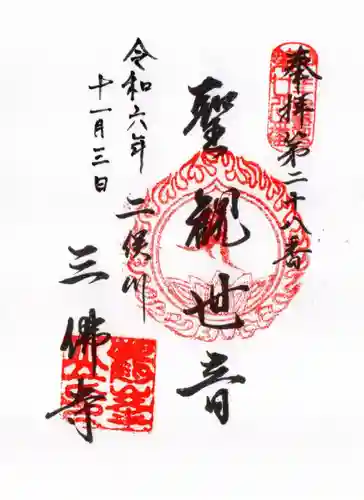 奉拝 第二十八番
聖観世音
二俣川
三佛寺
令和六年
十一月三日